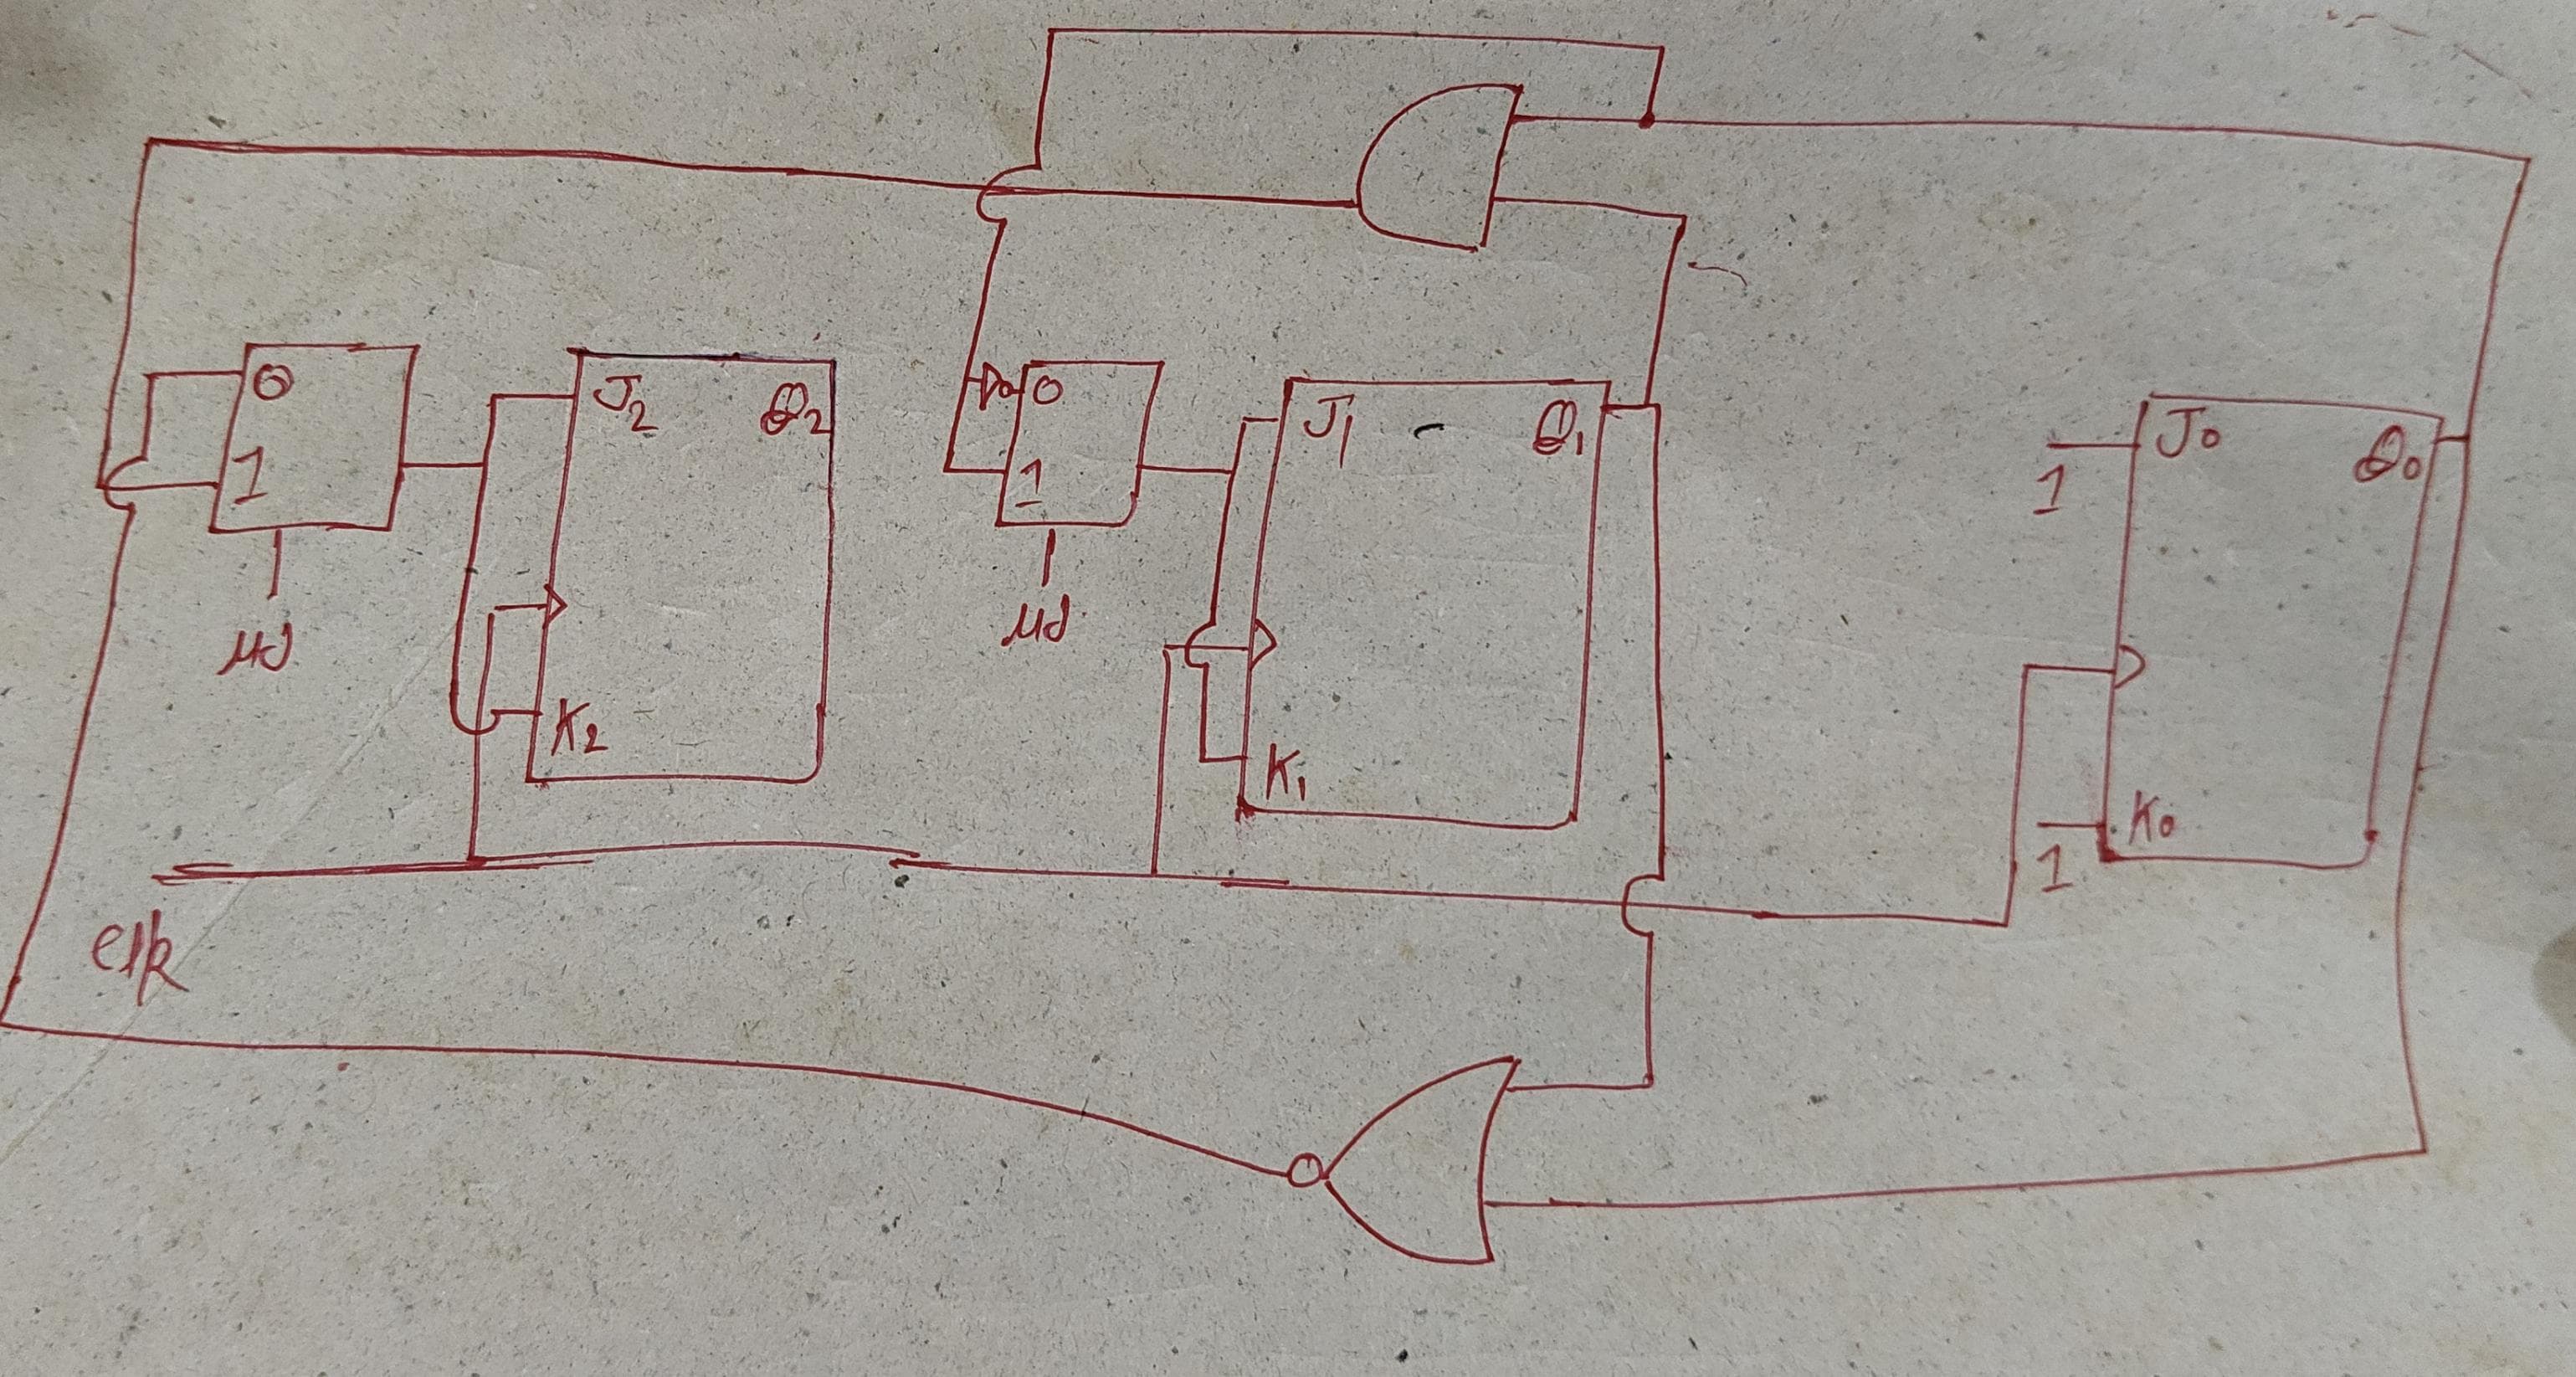 0
1
J₂
Q₂
K₂
0
1
J₁
Q₁
K₁
J₀
Q₀
1
K₀
1
clk